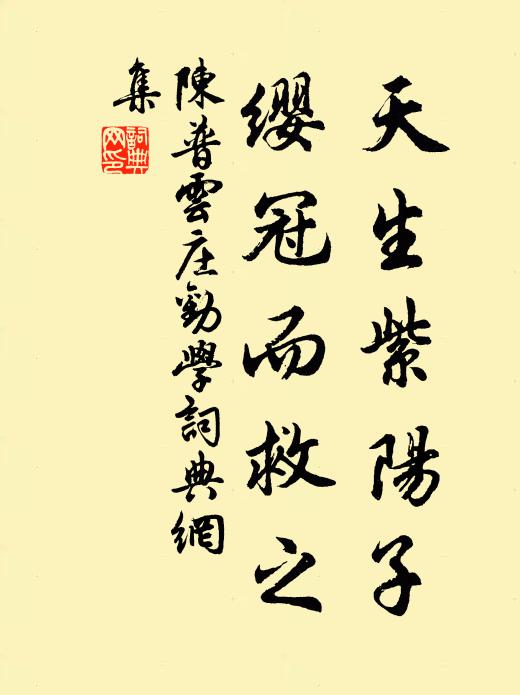 天生紫陽子
纓冠而救之
陳普雲庄勸學詞典網
集
詞典
网印